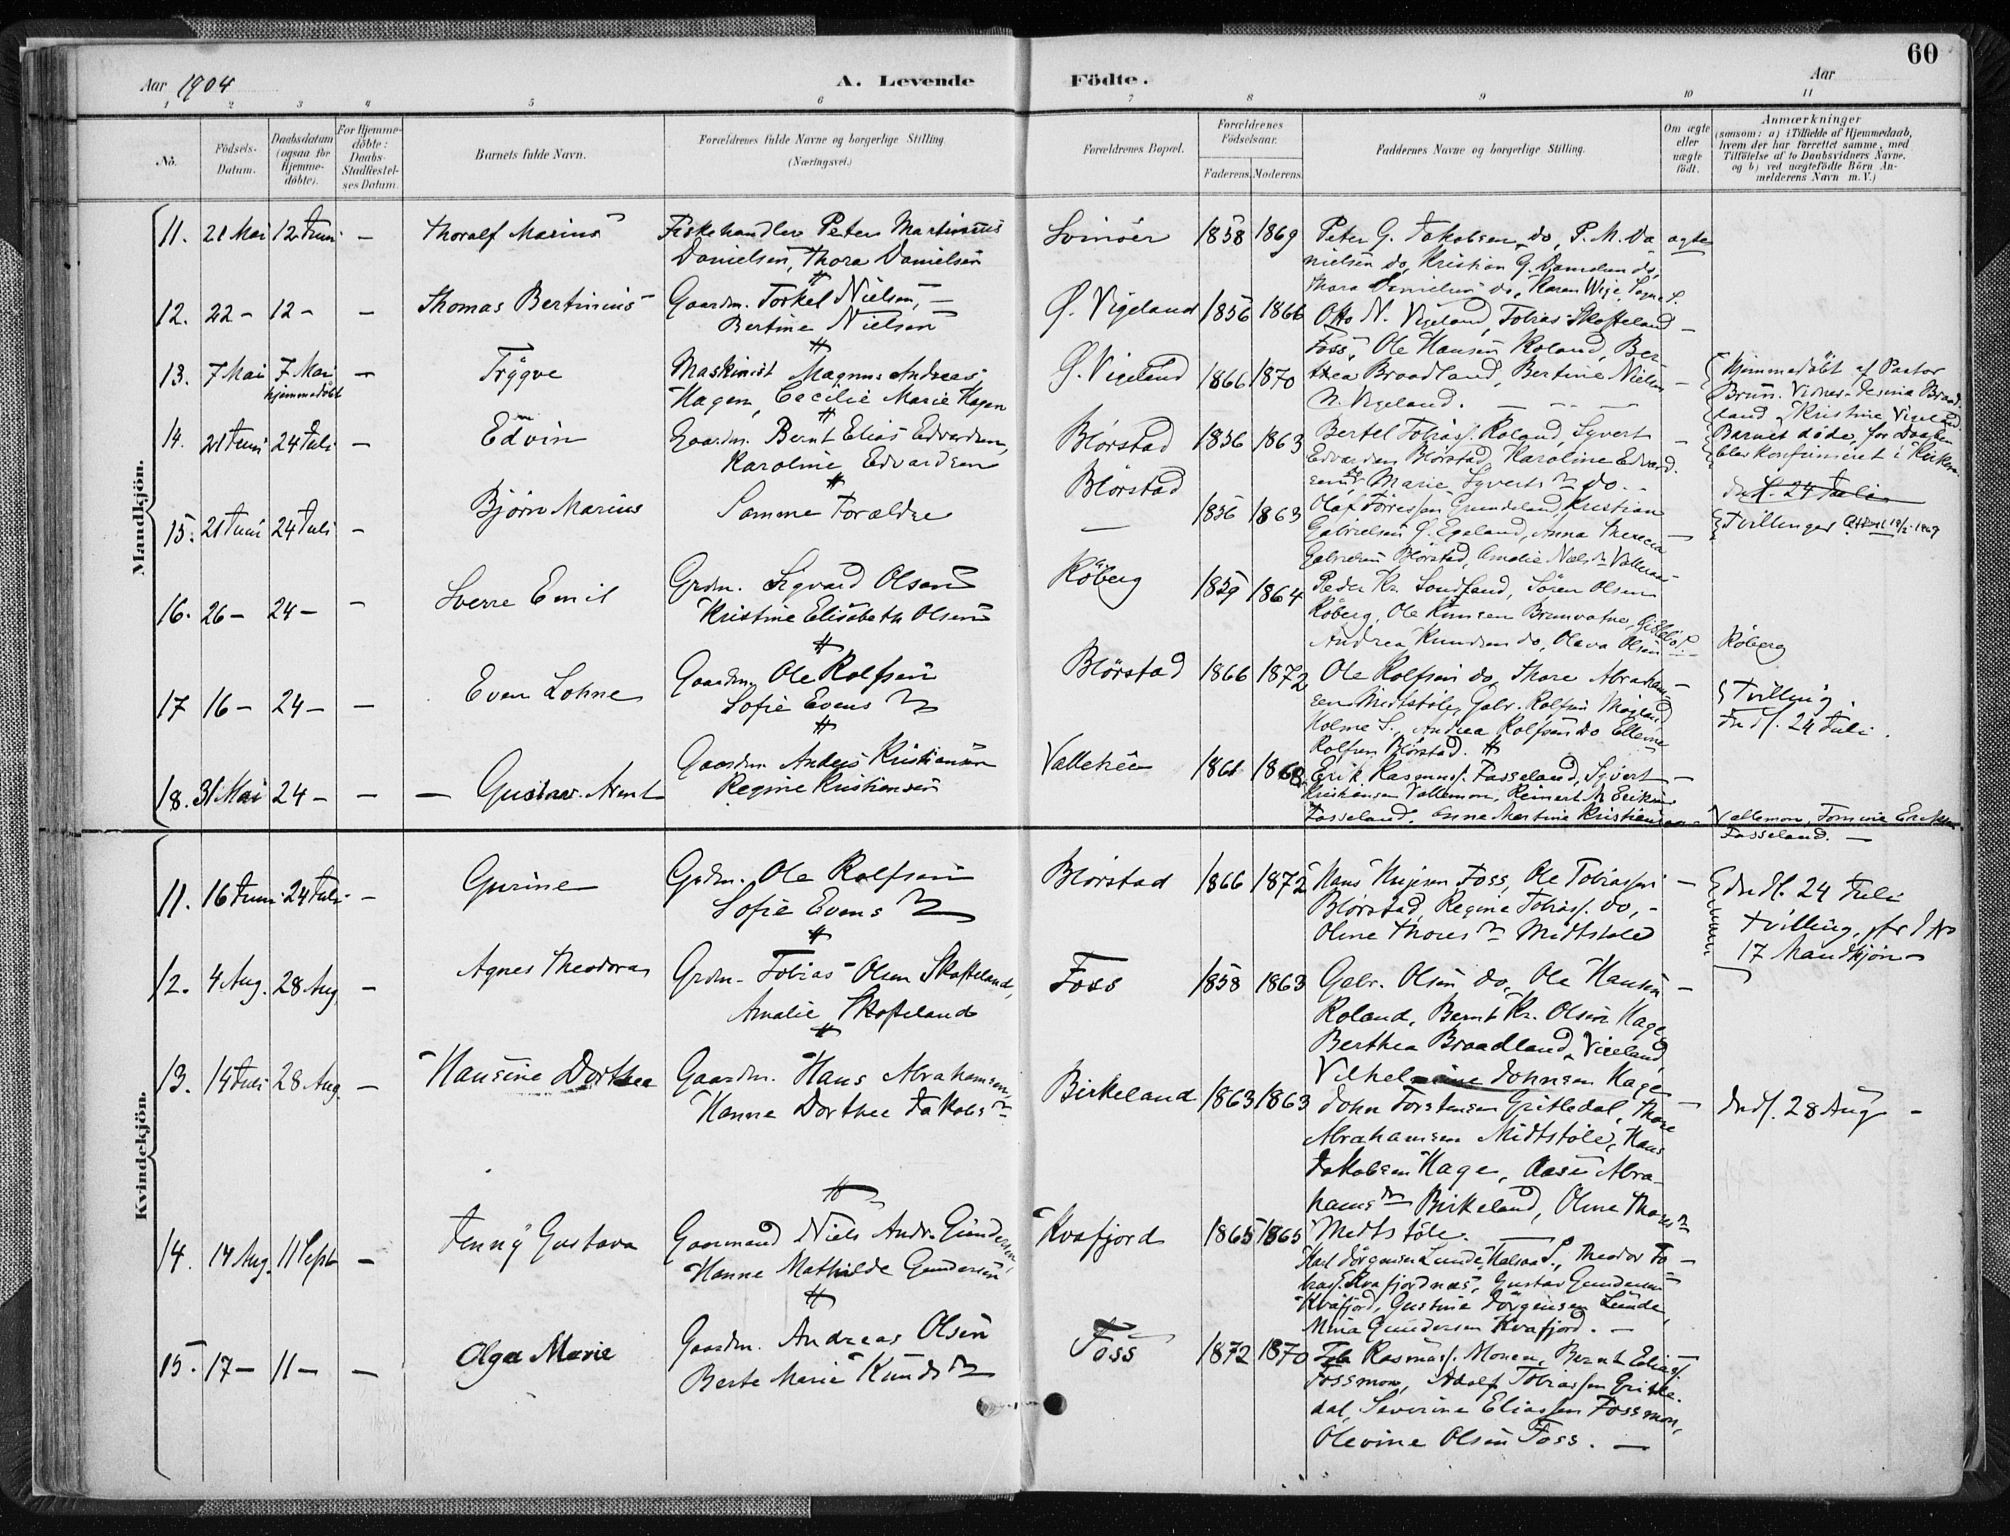 60
Aar 1904
A. Levende Födte.
Aar
1 2 3 4 5 6 7 8 9 10 11
No.
Födsels-Datum.
Daabsdatum (ogsaa for Hjemme-döbte).
For Hjemme-döbte: Daabs-Stadfæstel-ses Datum.
Barnets fulde Navn.
Forældrenes fulde Navne og borgerlige Stilling (Næringsvei.)
Forældrenes Bopæl.
Forældrenes Födselsaar.
Faderens. Moderens.
Faddernes Navne og borgerlige Stilling.
Om ægte eller uægte födt.
Anmærkninger
(saasom: a) i Tilfælde af Hjemmedaab,
hvem der har forrettet samme, med
Tilföielse af to Daabsvidners Navne,
og b) ved uægtefödte Börn An-
melderens Navn m. V.)
Mandkjön.
11. 21 Mai 12 Juni - Thoralf Marius
Fiskehandler Peter Martinius
Danielsen, Thora Danielsen
Svinöer 1858 1869
Peter G. Jakobsen do, P. M. Da
nielsen do, Kristian G. Danielsen do,
Thora Danielsen do, Karen Wige, Sogne S.
ægte
12. 22 - 12 - - Thomas Bertinius
Gaardm. Torkel Nielsen, -
Bertine Nielsen
Ø. Vigeland 1856 1866
Otto N. Vigeland, Tobias Skofteland -
Foss, Ole Hansen Roland, Ber-
thea Braadland, Bertine Nielsen
N. Vigeland. - - -
13. 7 Mai 7 Mai hjemmedöbt - Trÿgve
Maskinist Magnus Andreas
Hagen, Cecilie Marie Hagen
Ø. Vigeland 1866 1870
Hjemmedöbt af Pastor
Brun. Vidner Jesina Braad-
land, Kristine Vigeland.
Barnet döde, før Daaben
blev konfirmeret i Kirken
14. 21 Juni 24 Juli - Edvin
Gaardm. Bernt Elias Edvardsen,
Karoline Edvardsen
Blörstad 1856 1863
Bertel Tobiass. Roland, Syvert -
Edvardsen Blörstad, Karoline Edvard
sen do, Marie Syverts dr do. -
Indf. 24 Juli
15. 21 Juni 24 Juli - Bjørn Marius
Samme Forældre
Blörstad - 1856 1863
Olaf Torressen Grundeland, Kristian
Gabrielsen Ø. Egeland, Anna Therecia -
Gabrielsen Blörstad, Amalie Niels dr
Tvillinger
16. 26 - 24 - - Sverre Emil
Grdm. Sigvard Olsen
Kristine Elisabeth Olsen
Röberg 1859 1864
Peder Kr. Sundland, Sören Olsen
Röberg, Ole Knudsen Brunvatne,
Andrea Knudsen do, Olava Olsen
Röberg
17 16 - 24 - - Even Lohne
Gaardm. Ole Rolfsen
Sofie Evens dr
Blörstad 1866 1872
Ole Rolfsen do, Thore Abraham- -
sen Midtstöle, Gabr. Rolfsen
Holme S., Andrea Rolfsen do Elleine
Rolfsen Blörstad.
Tvilling.
Indf. 24 Juli.
18. 31 Mai 24 - - - Gustav Arent
Gaardm. Anders Kristiansen
Regine Kristiansen
1868
Erik Rasmuss. Fasseland, Syvert -
Kristiansen Vallemon, Reinert M. Eriksen
Fasseland. Anna Martine Kristiansen
Vallemon, Tomine Eriksen
Fasseland. -
Kvindekjön.
11. 16 Juni 24 Juli - Gurine
Grdm. Ole Rolfsen
Sofie Evens dr
Blörstad 1866 1872
Hans Foss, Ole Tobiassen -
Blörstad, Regine Tobiass. do, -
Oline Thores dr Midtstöle
Indf. 24 Juli
Tvilling, jfr No
17 Mandkjön -
12. 4 Aug. 28 Aug - Agnes Theodora
Grdm. Tobias Olsen Skofteland,
Amalie Skofteland
Foss 1858 1863
Gabr. Olsen do, Ole Hansen -
Roland, Bernt Kr. Olsen Hage
Berthea Braadland, Vigeland,
Vilhelmine Johnsen Hage
13. 14 Juli 28 Aug - Hansine Dorthea
Gaardm. Hans Abrahamsen,
Hanne Dorthee Jakobs dr
Birkeland 1863 1863
John Torstensen Gritledal, Thore -
Abrahamsen Midtstöle, Hans
Jakobsen Hage, Aase Abra-
hams dr Birkeland, Oline Thores dr
Midtstöle. -
Indf. 28 Aug -
14. 14 Aug. 11 Sept - Jenny Gustava
Gaarmand Niels Andr. Gundersen,
Hanne Mathilde Gundersen
Kvafjord 1865 1865
Karl Jörgensen Lunde, Halsaa S., Theodor To -
biass. Kvafjordnæs, Gustav Gundersen
Kvafjord, Gustine Jörgensen Lunde,
Mina Gundersen Kvafjord. -
15. 17 - 11 - - Olga Marie
Gaardm. Andreas Olsen
Berte Marie Knuds dr
Foss 1872 1870
Tob. Rasmuss. Monen, Bernt Eliass. -
Fossmon, Adolf Tobiassen Gritle-
dal, Severine Eliassen Fossmon,
Olevine Olsen Foss. -